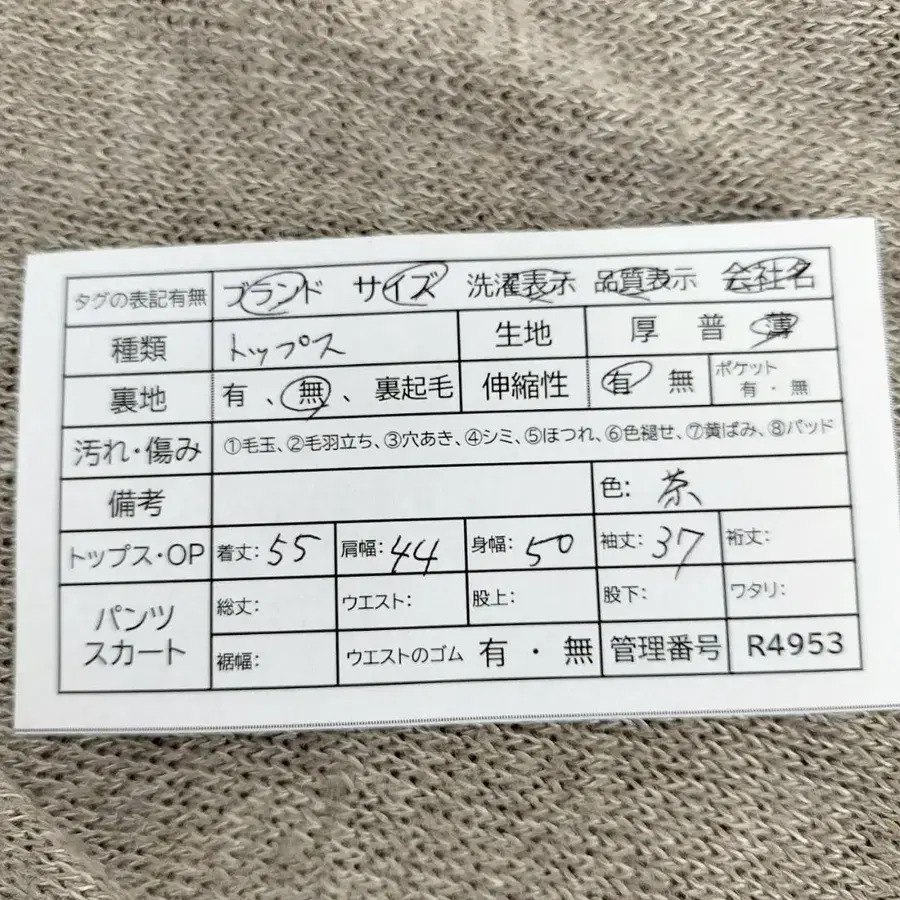 タグの表記有無 ブランド サイズ 洗濯表示 品質表示 会社名
種類 トップス 生地 厚 普 薄
裏地 有、無、裏起毛 伸縮性 有 無 ポケット 有・無
汚れ・傷み ①毛玉、②毛羽立ち、③穴あき、④シミ、⑤ほつれ、⑥色褪せ、⑦黄ばみ、⑧パッド
備考 色: 茶
トップス・OP 着丈: 55 肩幅: 44 身幅: 50 袖丈: 37 裄丈:
パンツ スカート 総丈: ウエスト: 股上: 股下: ワタリ:
裾幅: ウエストのゴム 有・無 管理番号 R4953